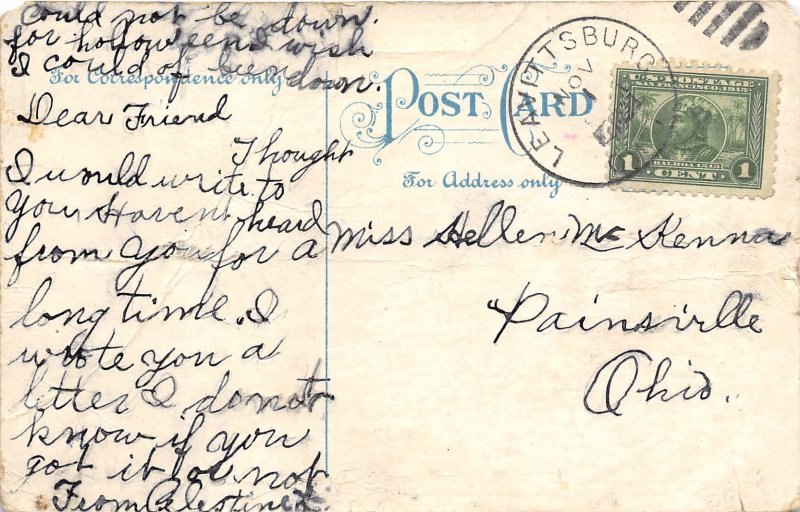 could not be down.
for hollow eend wish
I could of been down.
For Correspondence only
POST CARD
For Address only
LEAVITTSBURG
NOV
U.S. POSTAGE
SAN FRANCISCO 1915
1 CENT 1
Dear Friend
Thought
I would write to
you Havent heard
from you for a
long time. I
wrote you a
letter I do not
know if you
got it or not
From Celestine
Miss Hellen McKenna
Painsville
Ohio.